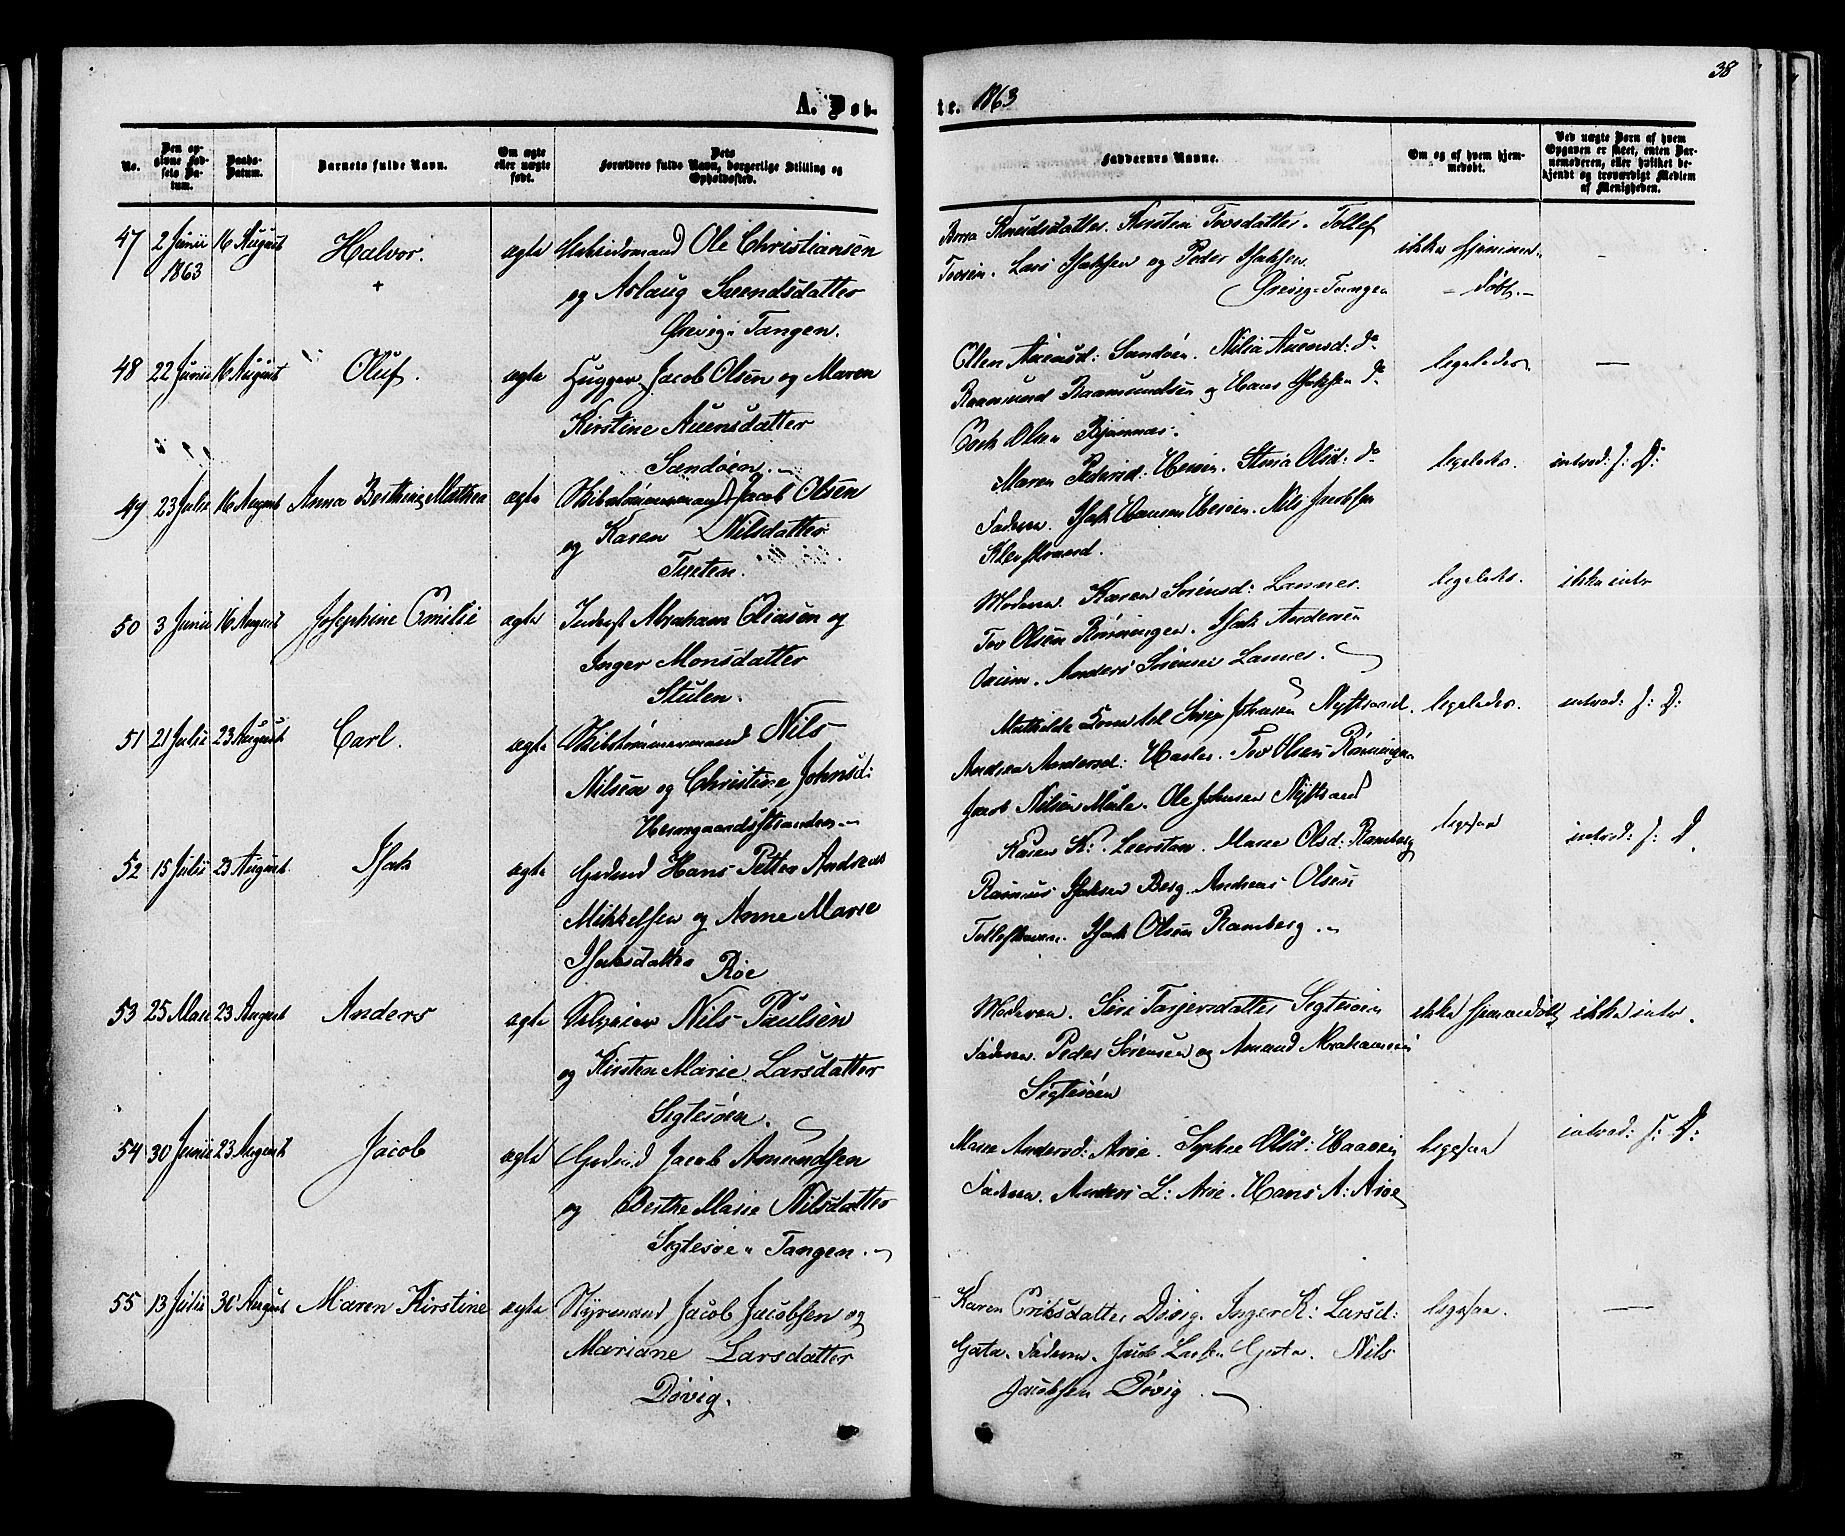 38
A. Døb-
te. 1863
No.
Den op-
givne Fød-
sels Da-
tum.
Daabs-
Datum.
Barnets fulde Navn.
Om ægte
eller uægte
født.
Dets
Forældres fulde Navn, borgerlige Stilling og
Opholdssted.
Faddernes Navne.
Om og af hvem hjem-
medøbt.
Ved uægte Børn af hvem
Opgaven er skeet, enten Bar-
nemoderen, eller hvilket be-
kjendt og troværdigt Medlem
af Menigheden.
47 2 Junii 16 August Halvor. ægte Ole Christiansen
1863
og Aslaug Svendsdatter
Grevig-Tangen.
Knudsdatter. Kirsten Tovsdatter. Tollef
Tovsen. Lars Isaksen og Peder Isaksen
Grevig-Tangen
ikke hjemme-
døbt.
—
48 22 Junii 16 August Oluf. ægte Hugger Jacob Olsen og Maren
Kirstine Auensdatter
Sandøen.
Ellen Auensd: Sandøen. Nilia Auensd: do
Raamund Raamundsen og Hans Isaksen do
Olsen Bjørnnæs.
ligeledes
—
49 23 Julii 16 August Anna Berthine Mathea ægte Skibstømmermand Jacob Olsen
og Karen Nilsdatter
Tueten.
Maren Pedersd: Olsd: do
Faderen. Isak Hansen Nils Jacobsen
Klevstrand.
ligeledes. introd: f: D:
50 3 Junii 16 August Josephine Emilie ægte Inderst Abraham Eliasen og
Inger Monsdatter
Stulen.
Moderen. Karen Sørensd: Lannes.
Tov Olsen Rønningen. Isak Andersen
Anders Sørensen Lannes.
ligeledes. ikke intr
51 21 Julii 23 August Carl. ægte Skibstømmermand Nils
Nilsen og Christine Johnsd:
Hesengaardsstranden
Mathilde Johnsen Nystrand.
Andrea Andersd: Hasler. Tov Olsen Rønningen
Jacob Nilsen Mule. Ole Johnsen Nystrand
ligeledes. introd: f: D:
52 15 Julii 23 August Isak ægte Gaardmd Hans Petter Andreas
Mikkelsen og Anne Marie
Isaksdatter Røe
Karen K: Leerstan. Maren Olsd: Ramberg
Rasmus Isaksen Berg. Andreas Olsen
Isak Olsen Ramberg
ligesaa introd: f: D.
53 25 Mai 23 August Anders ægte Selveier Nils Paulsen
og Kirsten Marie Larsdatter
Sigtesøen.
Moderen. Siri Tarjersdatter Sigtesøen
Faderen. Peder Sørensen og Amund Abrahamsen
Sigtesøen
ikke hjemmedøbt ikke intr.
54 30 Junii 23 August Jacob ægte Jacob Amundsen
og Berthe Marie Nilsdatter
Sigtesøe-Tangen.
Maren Andersd: Arøe. Sophie Olsd: Haaøen
Faderen. Anders L: Arøe. Hans A: Arøe
ligesaa introd: f: D:
55 13 Julii 30 August Maren Kirstine ægte Styrmand Jacob Jacobsen og
Mariane Larsdatter
Døvig.
Karen Eriksdatter Døvig. Inger K: Larsd:
Gata. Faderen. Jacob Larsen Gata. Nils
Jacobsen Døvig.
ligesaa.
—